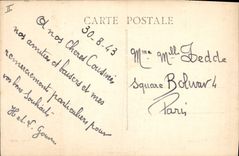 II
CARTE POSTALE
30-8-43
A nos Chères Cousines
nos amitiés et baisers et mes
remerciements particuliers pour
vos bons souhaits
H et V.
Mme Mll Zedde
Square Bolivar 4
Paris